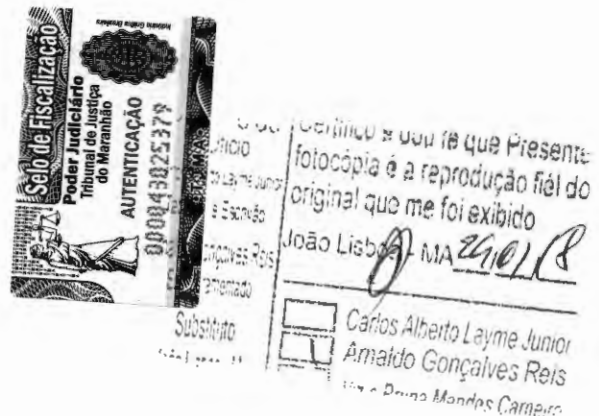 Selo de Fiscalização
Poder Judiciário
Tribunal de Justiça
do Maranhão
AUTENTICAÇÃO
000043025379
Layme Junior
e Escrivão
Gonçalves Reis
Substituto
Certifico e dou fé que Presente
fotocópia é a reprodução fiel do
original que me foi exibido
João Lisboa - MA
Carlos Alberto Layme Junior
Arnaldo Gonçalves Reis
Bruna Mendes Carneiro